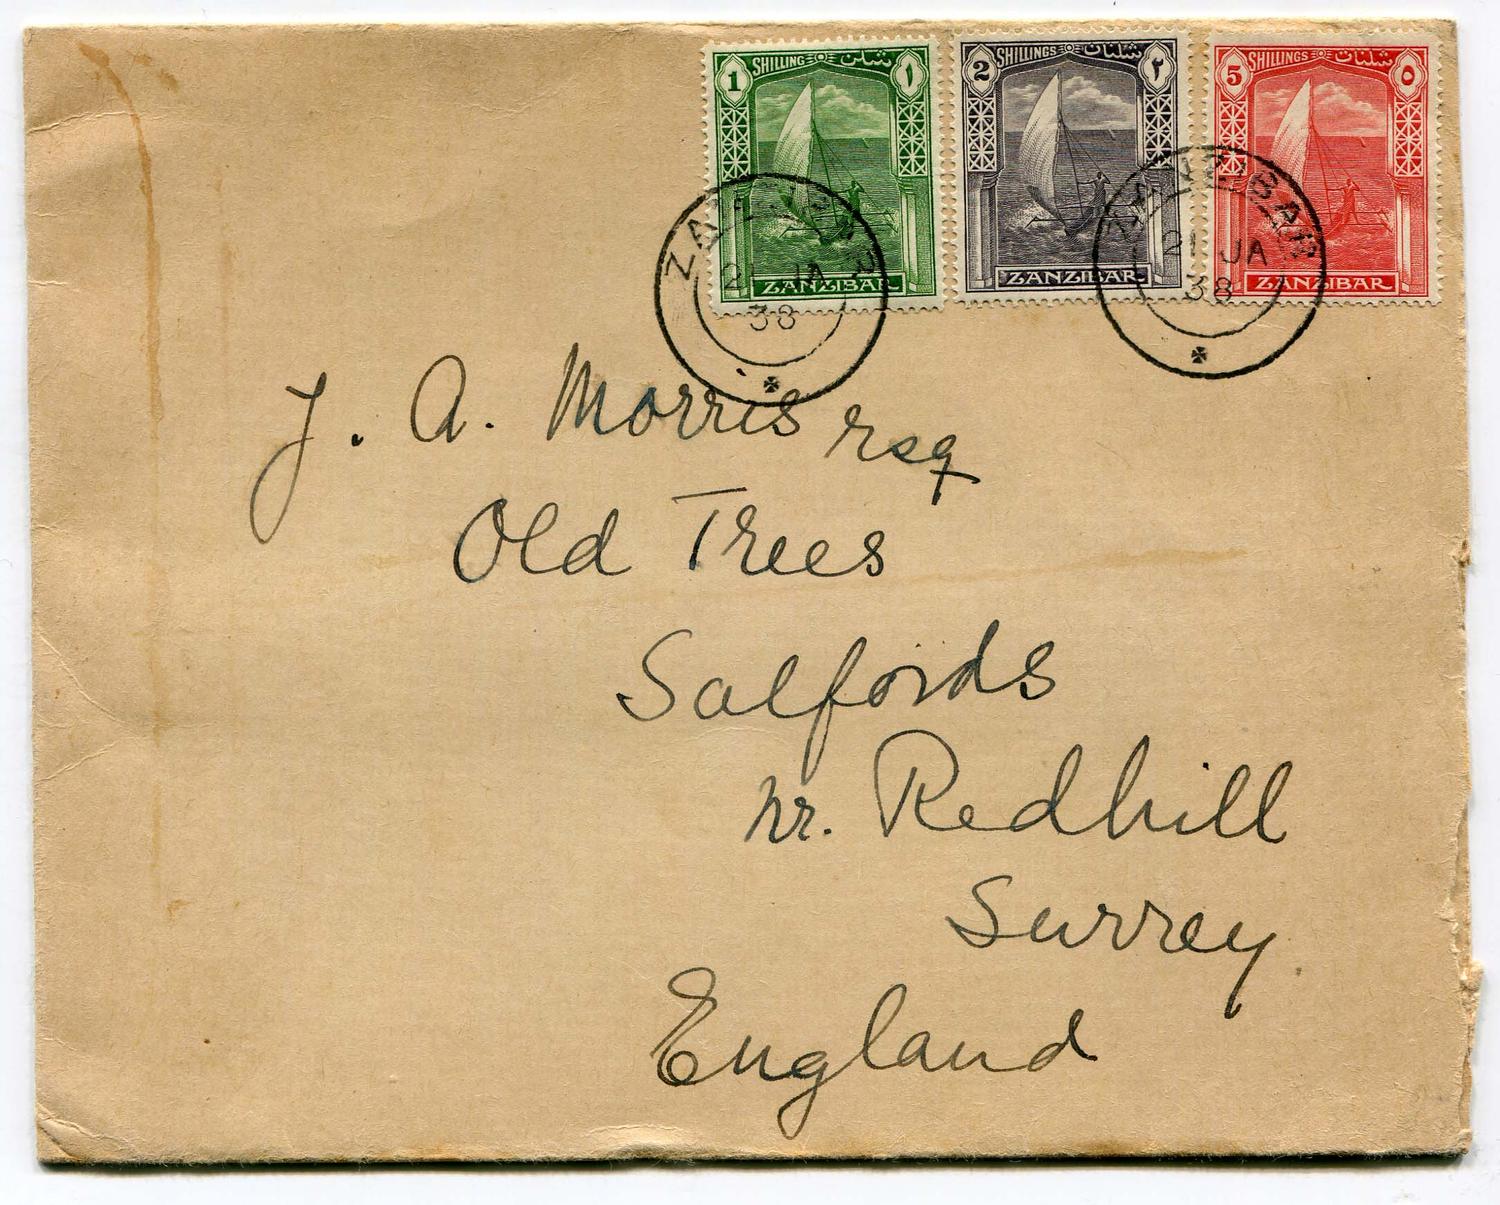 1 SHILLING شلن ١
ZANZIBAR
2 SHILLINGS شلنات ٢
ZANZIBAR
5 SHILLINGS شلنات ٥
ZANZIBAR
ZANZIBAR
21 JA
38
ZANZIBAR
21 JA
38
J. A. Morris Esq
Old Trees
Salfords
nr. Redhill
Surrey.
England